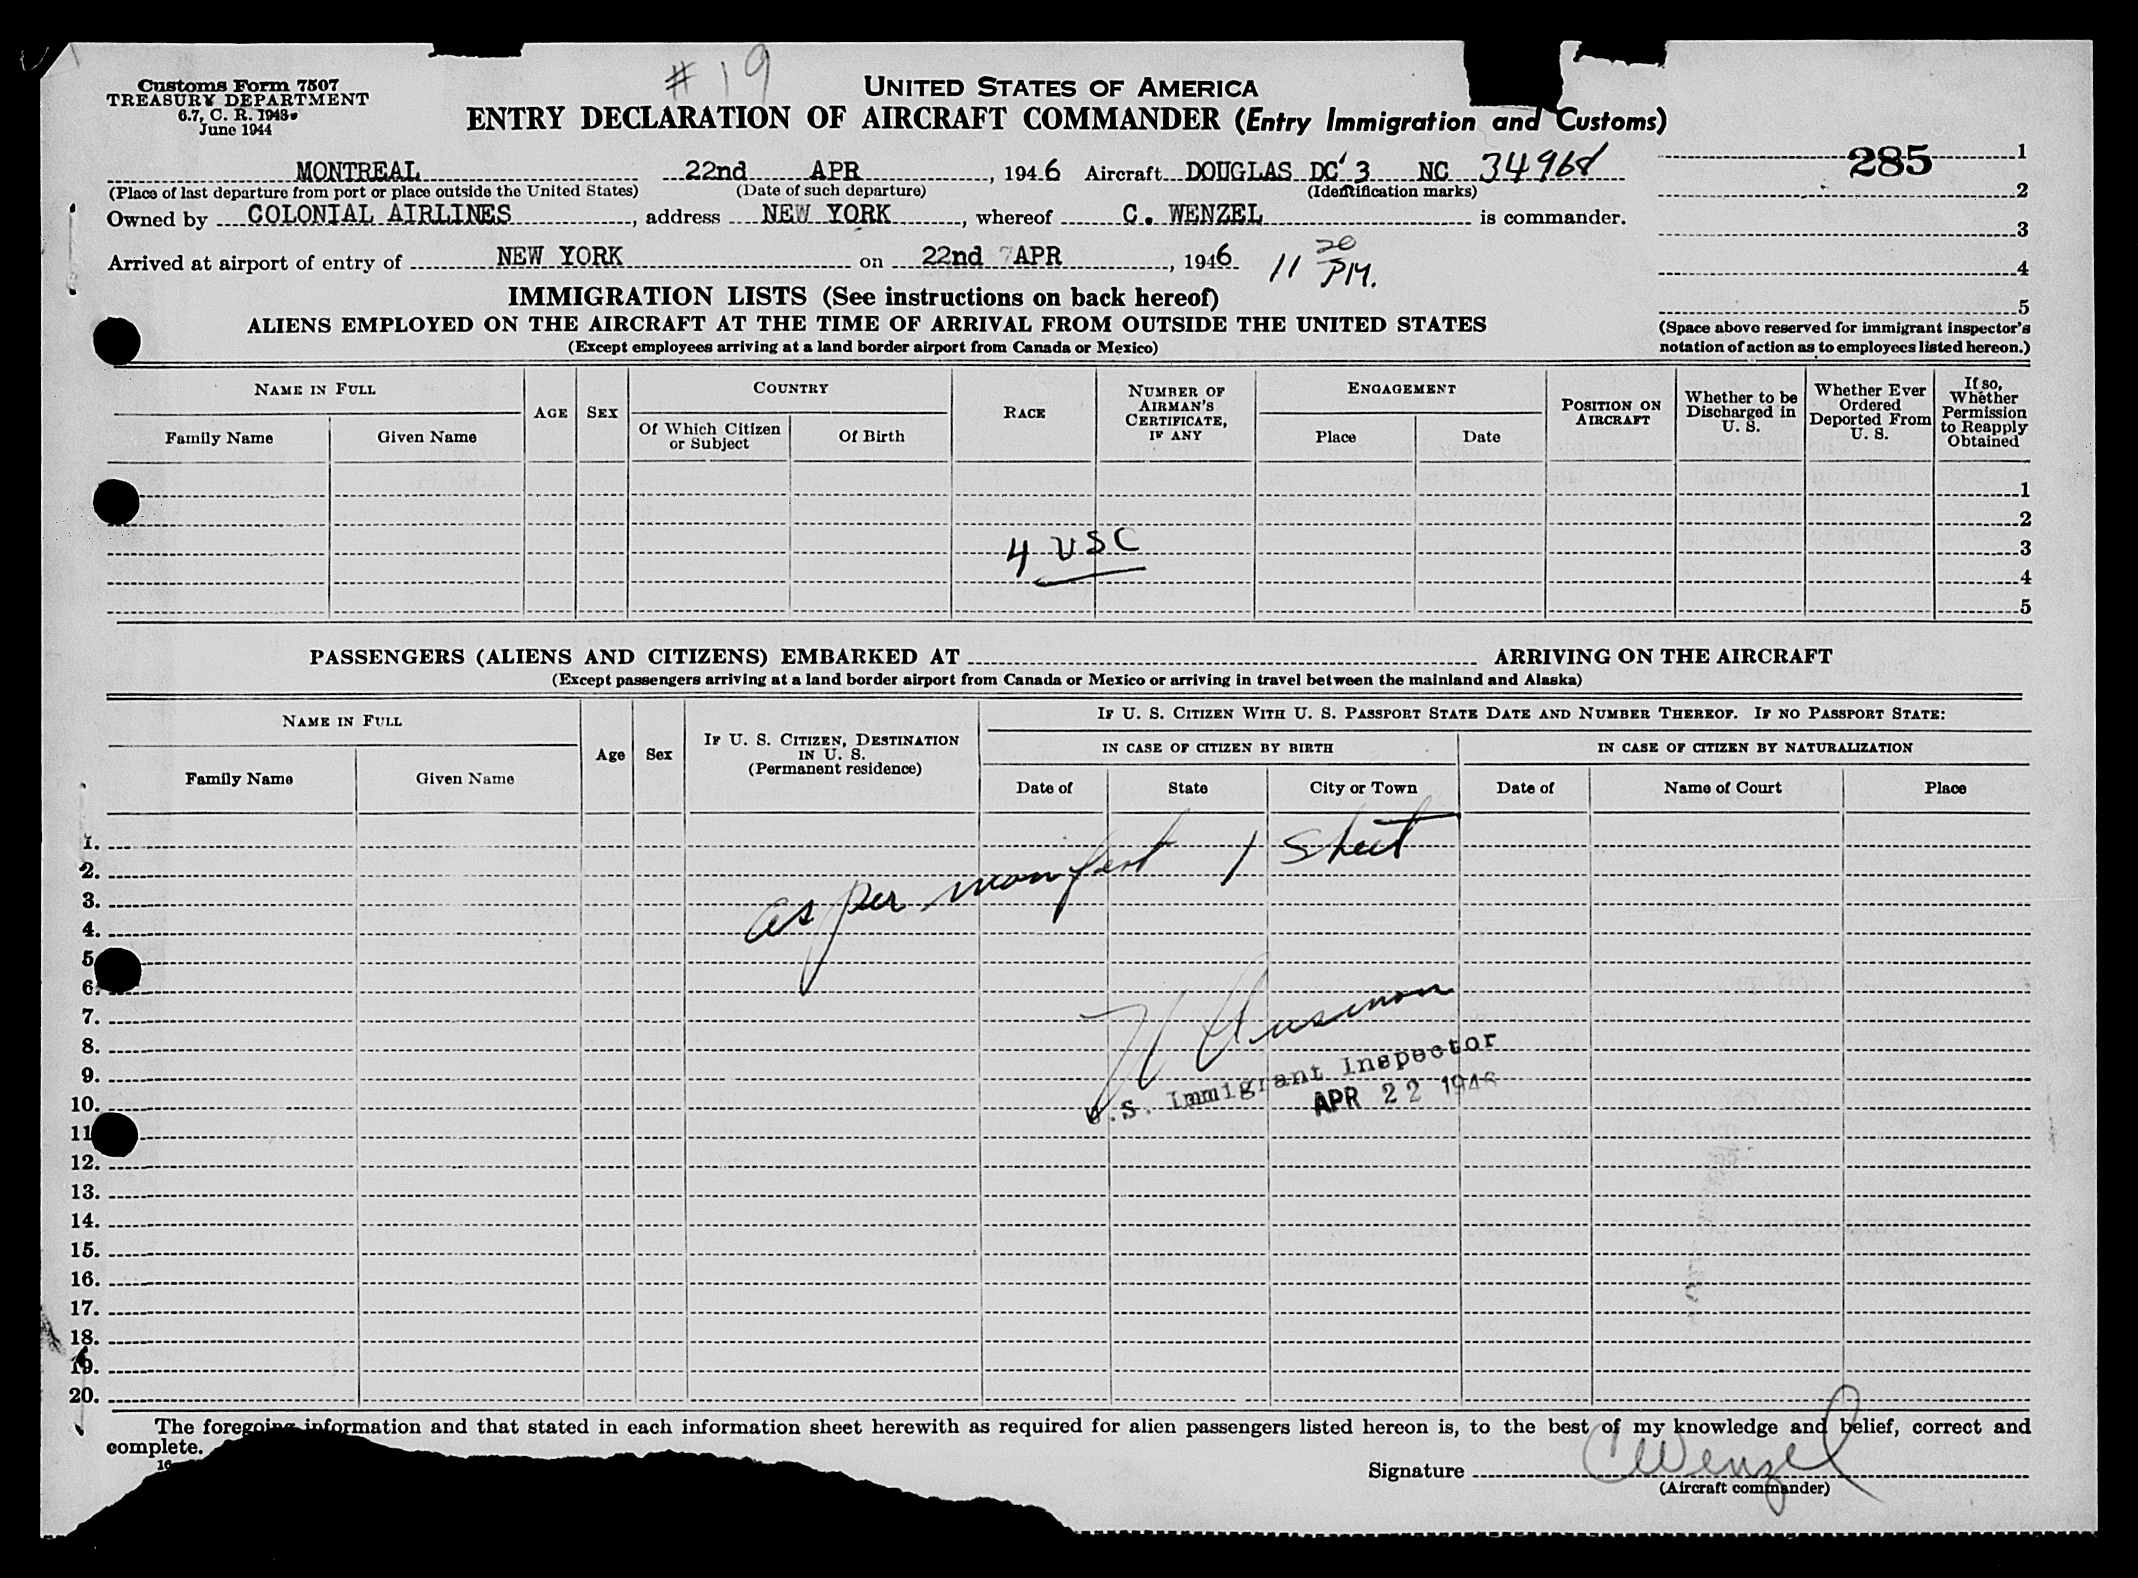 # 19
Customs Form 7507
TREASURY DEPARTMENT
6.7, C. R. 1943.
June 1944
UNITED STATES OF AMERICA
ENTRY DECLARATION OF AIRCRAFT COMMANDER (Entry Immigration and Customs)
MONTREAL 22nd APR, 1946 Aircraft DOUGLAS DC'3 NC 34968
(Place of last departure from port or place outside the United States) (Date of such departure) (Identification marks)
Owned by COLONIAL AIRLINES, address NEW YORK, whereof C. WENZEL is commander.
Arrived at airport of entry of NEW YORK on 22nd APR, 1946 11 20 PM.
285 1
2
3
4
5
(Space above reserved for immigrant inspector's
notation of action as to employees listed hereon.)
IMMIGRATION LISTS (See instructions on back hereof)
ALIENS EMPLOYED ON THE AIRCRAFT AT THE TIME OF ARRIVAL FROM OUTSIDE THE UNITED STATES
(Except employees arriving at a land border airport from Canada or Mexico)
NAME IN FULL
Family Name Given Name
AGE SEX
COUNTRY
Of Which Citizen or Subject Of Birth
RACE
NUMBER OF AIRMAN'S CERTIFICATE, IF ANY
ENGAGEMENT
Place Date
POSITION ON AIRCRAFT
Whether to be Discharged in U. S.
Whether Ever Ordered Deported From U. S.
If so, Whether Permission to Reapply Obtained
1
2
3
4 USC
4
5
PASSENGERS (ALIENS AND CITIZENS) EMBARKED AT ARRIVING ON THE AIRCRAFT
(Except passengers arriving at a land border airport from Canada or Mexico or arriving in travel between the mainland and Alaska)
NAME IN FULL
Family Name Given Name
Age Sex
IF U. S. CITIZEN, DESTINATION IN U. S.
(Permanent residence)
IF U. S. CITIZEN WITH U. S. PASSPORT STATE DATE AND NUMBER THEREOF. IF NO PASSPORT STATE:
IN CASE OF CITIZEN BY BIRTH IN CASE OF CITIZEN BY NATURALIZATION
Date of State City or Town Date of Name of Court Place
1.
2.
3.
4.
as per manifest 1 sheet
5
6.
7.
8.
9.
U.S. Immigrant Inspector
APR 22 1946
10.
11
12.
13.
14.
15.
16.
17.
18.
19.
20.
The foregoing information and that stated in each information sheet herewith as required for alien passengers listed hereon is, to the best of my knowledge and belief, correct and
complete.
16
Signature C Wenzel
(Aircraft commander)